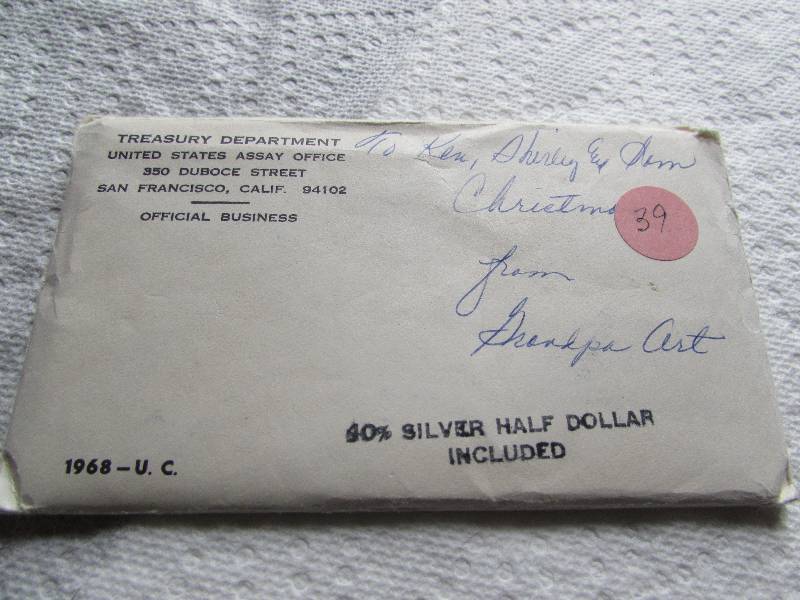 TREASURY DEPARTMENT
UNITED STATES ASSAY OFFICE
350 DUBOCE STREET
SAN FRANCISCO, CALIF. 94102
OFFICIAL BUSINESS
To Ken, Shirley &
Christma
39
from
Grandpa Art
40% SILVER HALF DOLLAR
INCLUDED
1968-U. C.